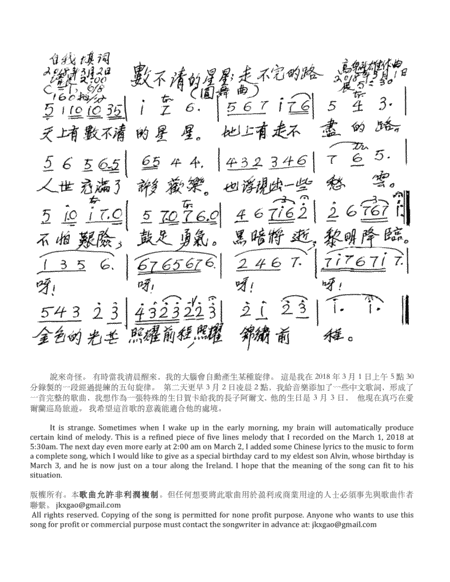 自我填詞
2018年3月2日
2:00
6/8
160拍/分
數不清的星星;走不完的路
(圓舞曲)
作曲
2018年3月1日
5:30
天上有數不清 的 星 星。 地上有走不 盡 的 路。
5 6 5 6.5 | 65 4 4. | 432 346 | 7 6 5.
人世充滿了 許多歡樂。 也浮現出一些 愁 雲。
不怕艱險, 鼓足勇氣。 黑暗將逝, 黎明降臨。
1 3 5 6. | 6765676. | 2 4 6 7. | 7i76717.
呀! 呀! 呀! 呀!
金色的光芒 照耀前程,照耀 錦繡前 程。
說來奇怪。 有時當我清晨醒來。我的大腦會自動產生某種旋律。 這是我在 2018 年 3 月 1 日上午 5 點 30
分錄製的一段經過提練的五句旋律。 第二天更早 3 月 2 日凌晨 2 點。我給音樂添加了一些中文歌詞。形成了
一首完整的歌曲。我想作為一張特殊的生日賀卡給我的長子阿爾文. 他的生日是 3 月 3 日。 他現在真巧在愛
爾蘭這島旅遊。 我希望這首歌的意義能適合他的處境。
It is strange. Sometimes when I wake up in the early morning, my brain will automatically produce
certain kind of melody. This is a refined piece of five lines melody that I recorded on the March 1, 2018 at
5:30am. The next day even more early at 2:00 am on March 2, I added some Chinese lyrics to the music to form
a complete song, which I would like to give as a special birthday card to my eldest son Alvin, whose birthday is
March 3, and he is now just on a tour along the Ireland. I hope that the meaning of the song can fit to his
situation.
版權所有。本歌曲允許非利潤複制。但任何想要將此歌曲用於盈利或商業用途的人士必須事先與歌曲作者
聯繫。 jkxgao@gmail.com
All rights reserved. Copying of the song is permitted for none profit purpose. Anyone who wants to use this
song for profit or commercial purpose must contact the songwriter in advance at: jkxgao@gmail.com